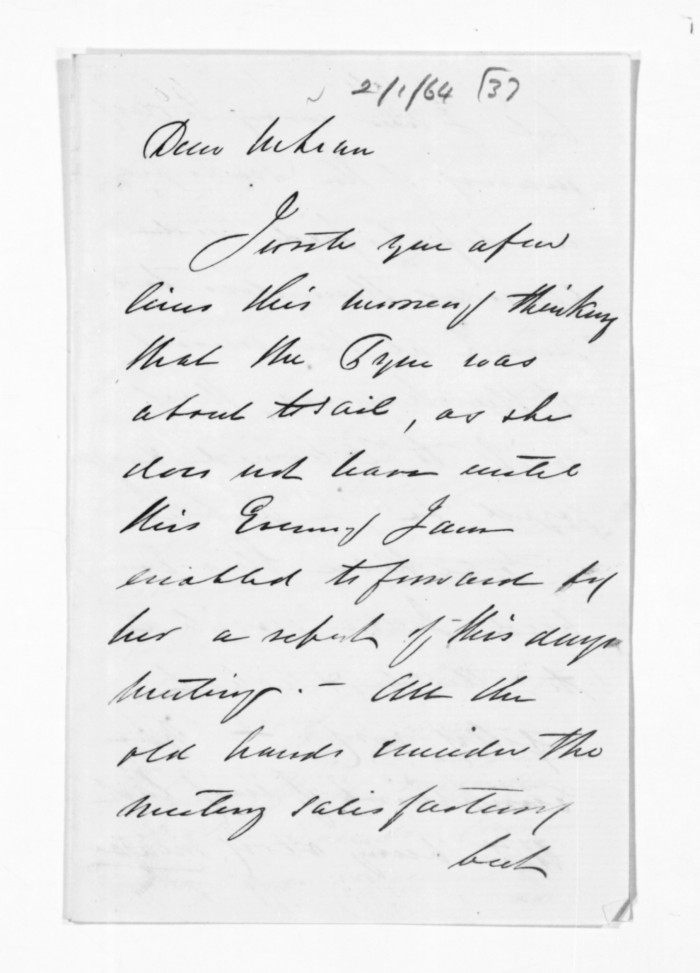 2/1/64 (37
Dear McLean
I wrote you a few
lines this morning thinking
that the Tyne was
about to sail, as she
does not leave until
this Evening I am
enabled to forward by
her a report of this days
meeting. - All the
old hands consider the
meeting satisfactory
but